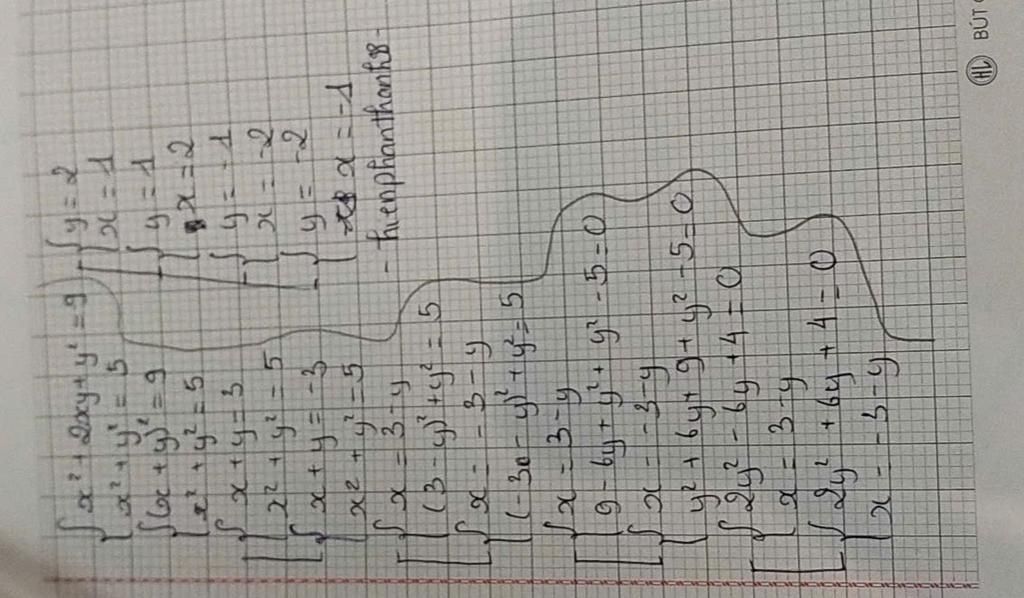 x² + 2xy + y² = 9
x² + y² = 5
(x + y)² = 9
x² + y² = 5
x + y = 3
x² + y² = 5
x + y = -3
x² + y² = 5
x = 3 - y
(3 - y)² + y² = 5
x = -3 - y
(-3 - y)² + y² = 5
x = 3 - y
9 - 6y + y² + y² - 5 = 0
x = -3 - y
y² + 6y + 9 + y² - 5 = 0
2y² - 6y + 4 = 0
x = 3 - y
2y² + 6y + 4 = 0
x = -3 - y
y = 2
x = 1
y = 1
x = 2
y = -1
x = -2
y = -2
x = -1
- hienphanthanh8 -
HL BÚT